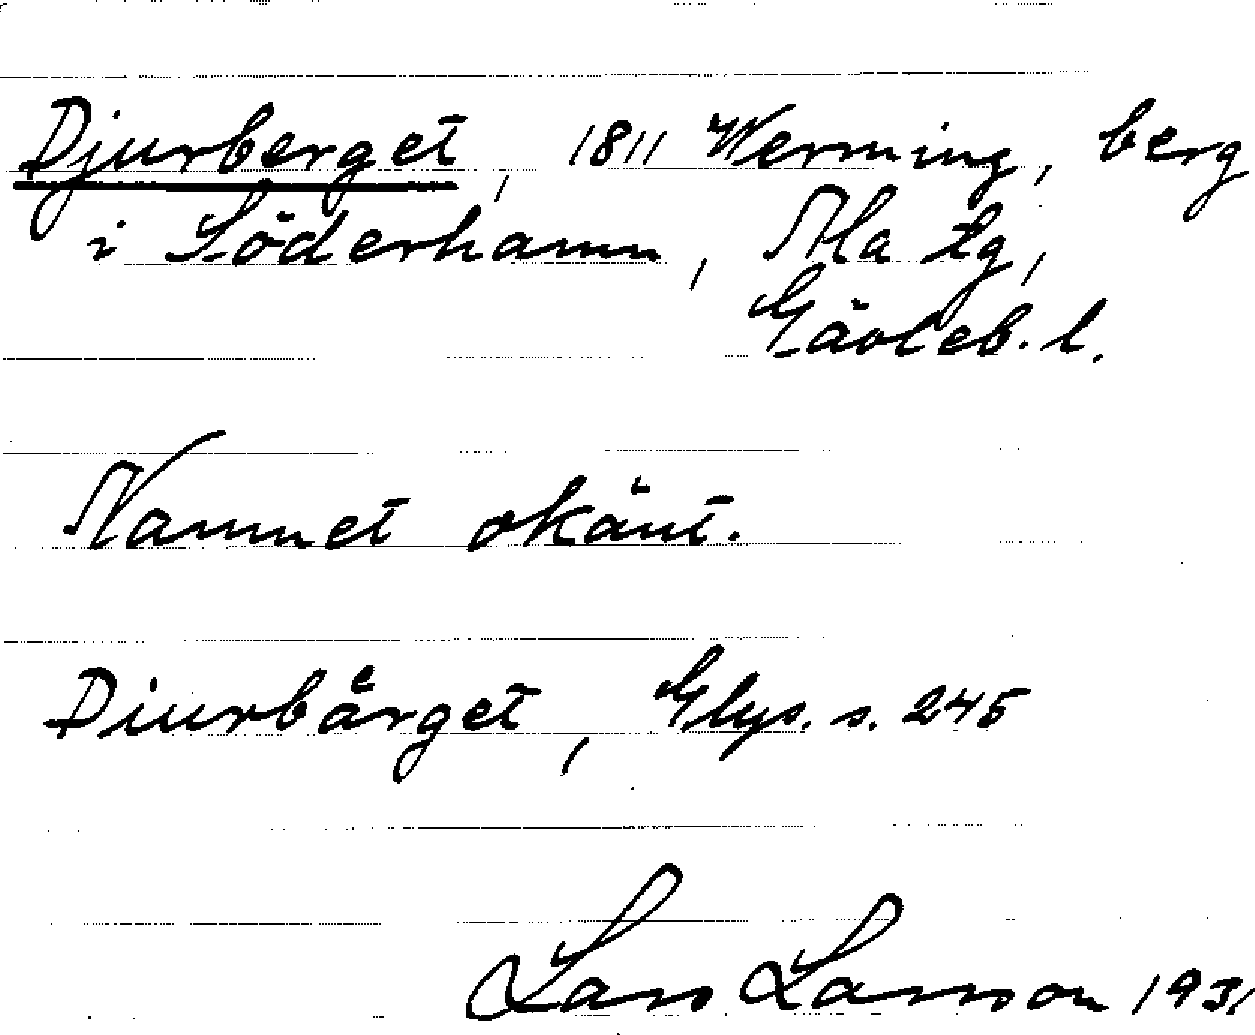 Djurberget, 1811 Werming, berg
i Söderhamn, Ala tg,
Gävleb. l.
Namnet okänt.
Diurbärget, Glys. s. 245
Lars Larsson 193